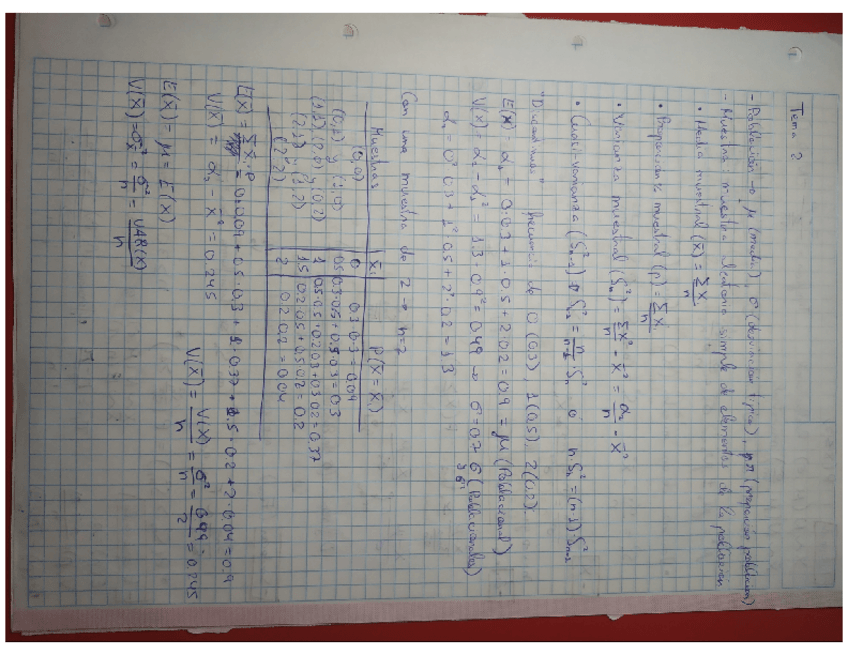 Tema 2
- Población → μ (media), σ (desviación típica), π (proporción población)
- Muestra: muestra aleatoria simple de elementos de la población
• Media muestral (x̄) = Σx/n
• Proporción muestral (p) = Σx/n
• Varianza muestral (S²n) = Σx²/n - x̄² = α₂/n - x̄²
• Cuasivarianza (S²n-1) → S²n-1 = n/n-1 · S²n ó n S²n = (n-1) S²n-1
0 (0.3), 1 (0.5), 2 (0.2)
E(x) = α₁ = 0·0.3 + 1·0.5 + 2·0.2 = 0.9 = μ (Poblacional)
V(x) = α₂ - α₁² = 1.3 - 0.9² = 0.49 → σ = 0.7
α₂ = 0²·0.3 + 1²·0.5 + 2²·0.2 = 1.3
Con una muestra de 2 → n=2
Muestras x̄ᵢ P(x̄ = x̄ᵢ)
(0,0) 0 0.3·0.3 = 0.09
(0,1) y (1,0) 0.5 0.3·0.5 + 0.5·0.3 = 0.3
(1,1) (2,0) y (0,2) 1 0.5·0.5 + 0.2·0.3 + 0.3·0.2 = 0.37
(2,1) y (1,2) 1.5 0.2·0.5 + 0.5·0.2 = 0.2
(2,2) 2 0.2·0.2 = 0.04
E(x̄) = Σx̄·p = 0·0.09 + 0.5·0.3 + 1·0.37 + 1.5·0.2 + 2·0.04 = 0.9
V(x̄) = α₂ - x̄² = 0.245
V(x̄) = V(x)/n = σ²/n = 0.49/2 = 0.245
E(x̄) = μ = E(x)
V(x̄) = σ²x̄ = σ²/n = VAR(x)/n